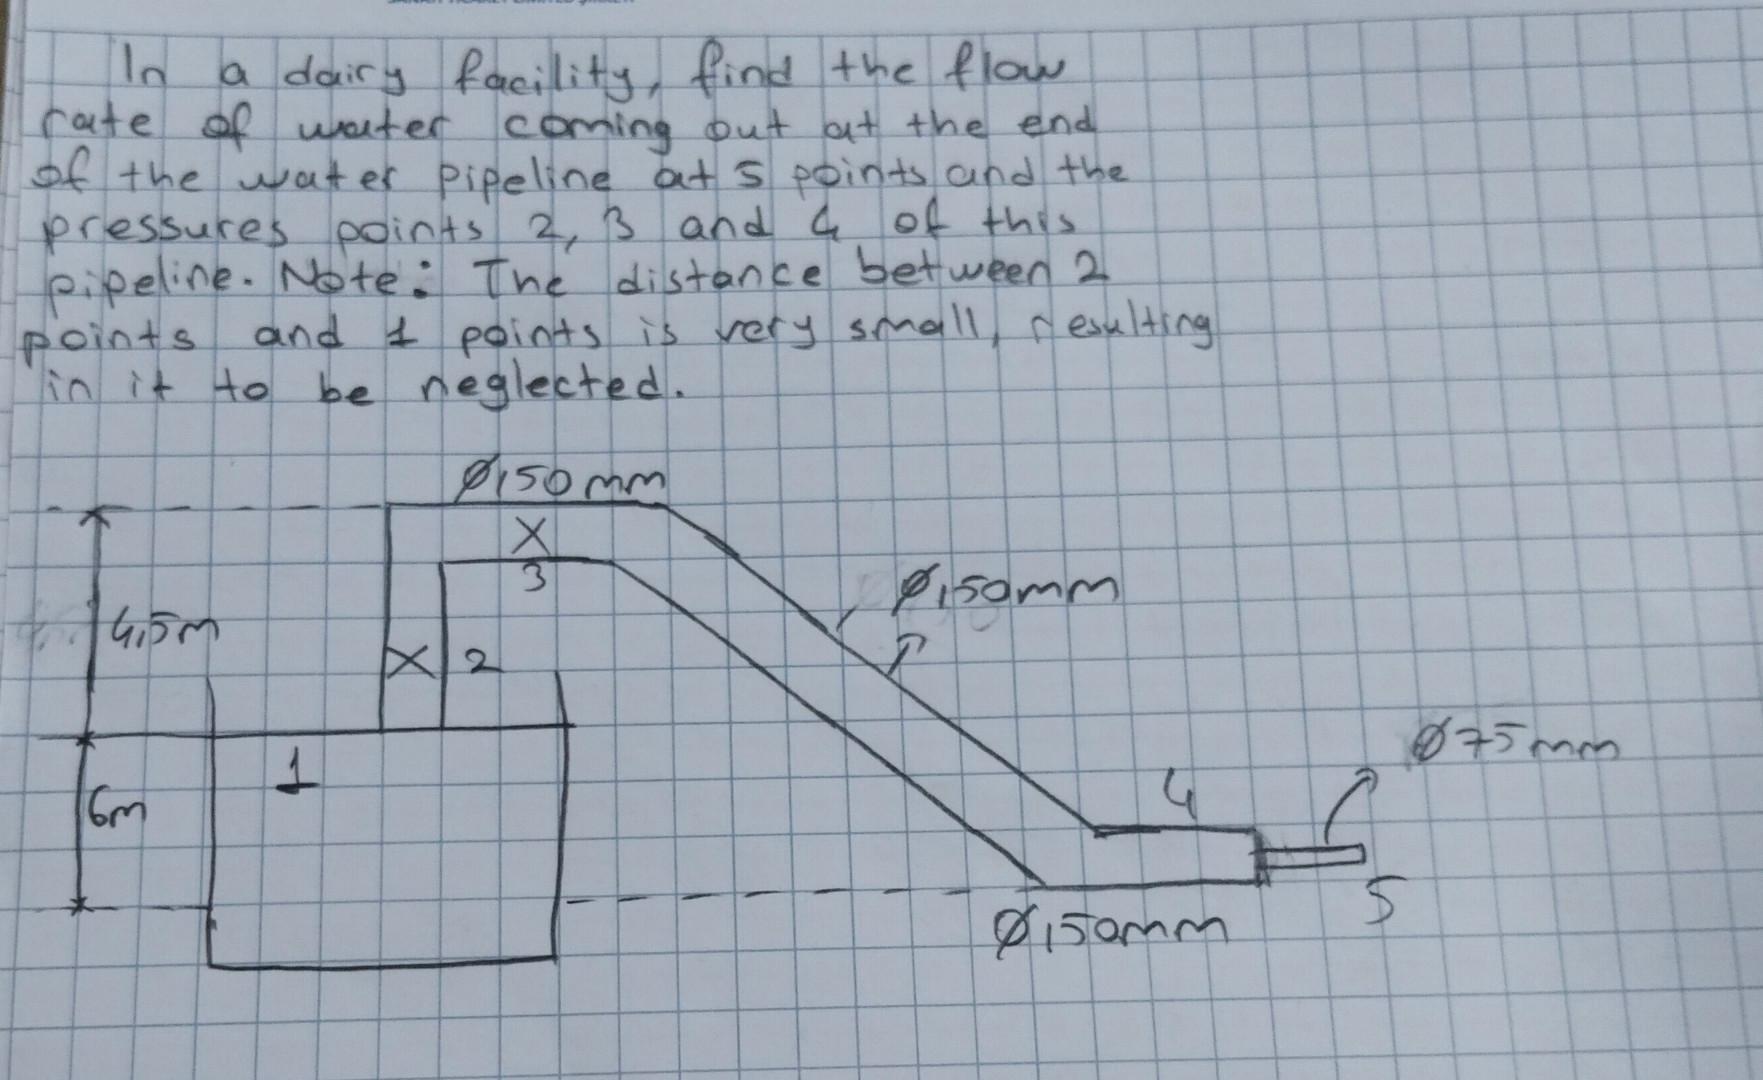 In a dairy facility, find the flow
rate of water coming out at the end
of the water pipeline at 5 points and the
pressures points 2, 3 and 4 of this
pipeline. Note: The distance between 2
points and 1 points is very small, resulting
in it to be neglected.
Ø150mm
X
3
Ø150mm
4,5m
X 2
Ø75mm
1
4
6m
5
Ø150mm